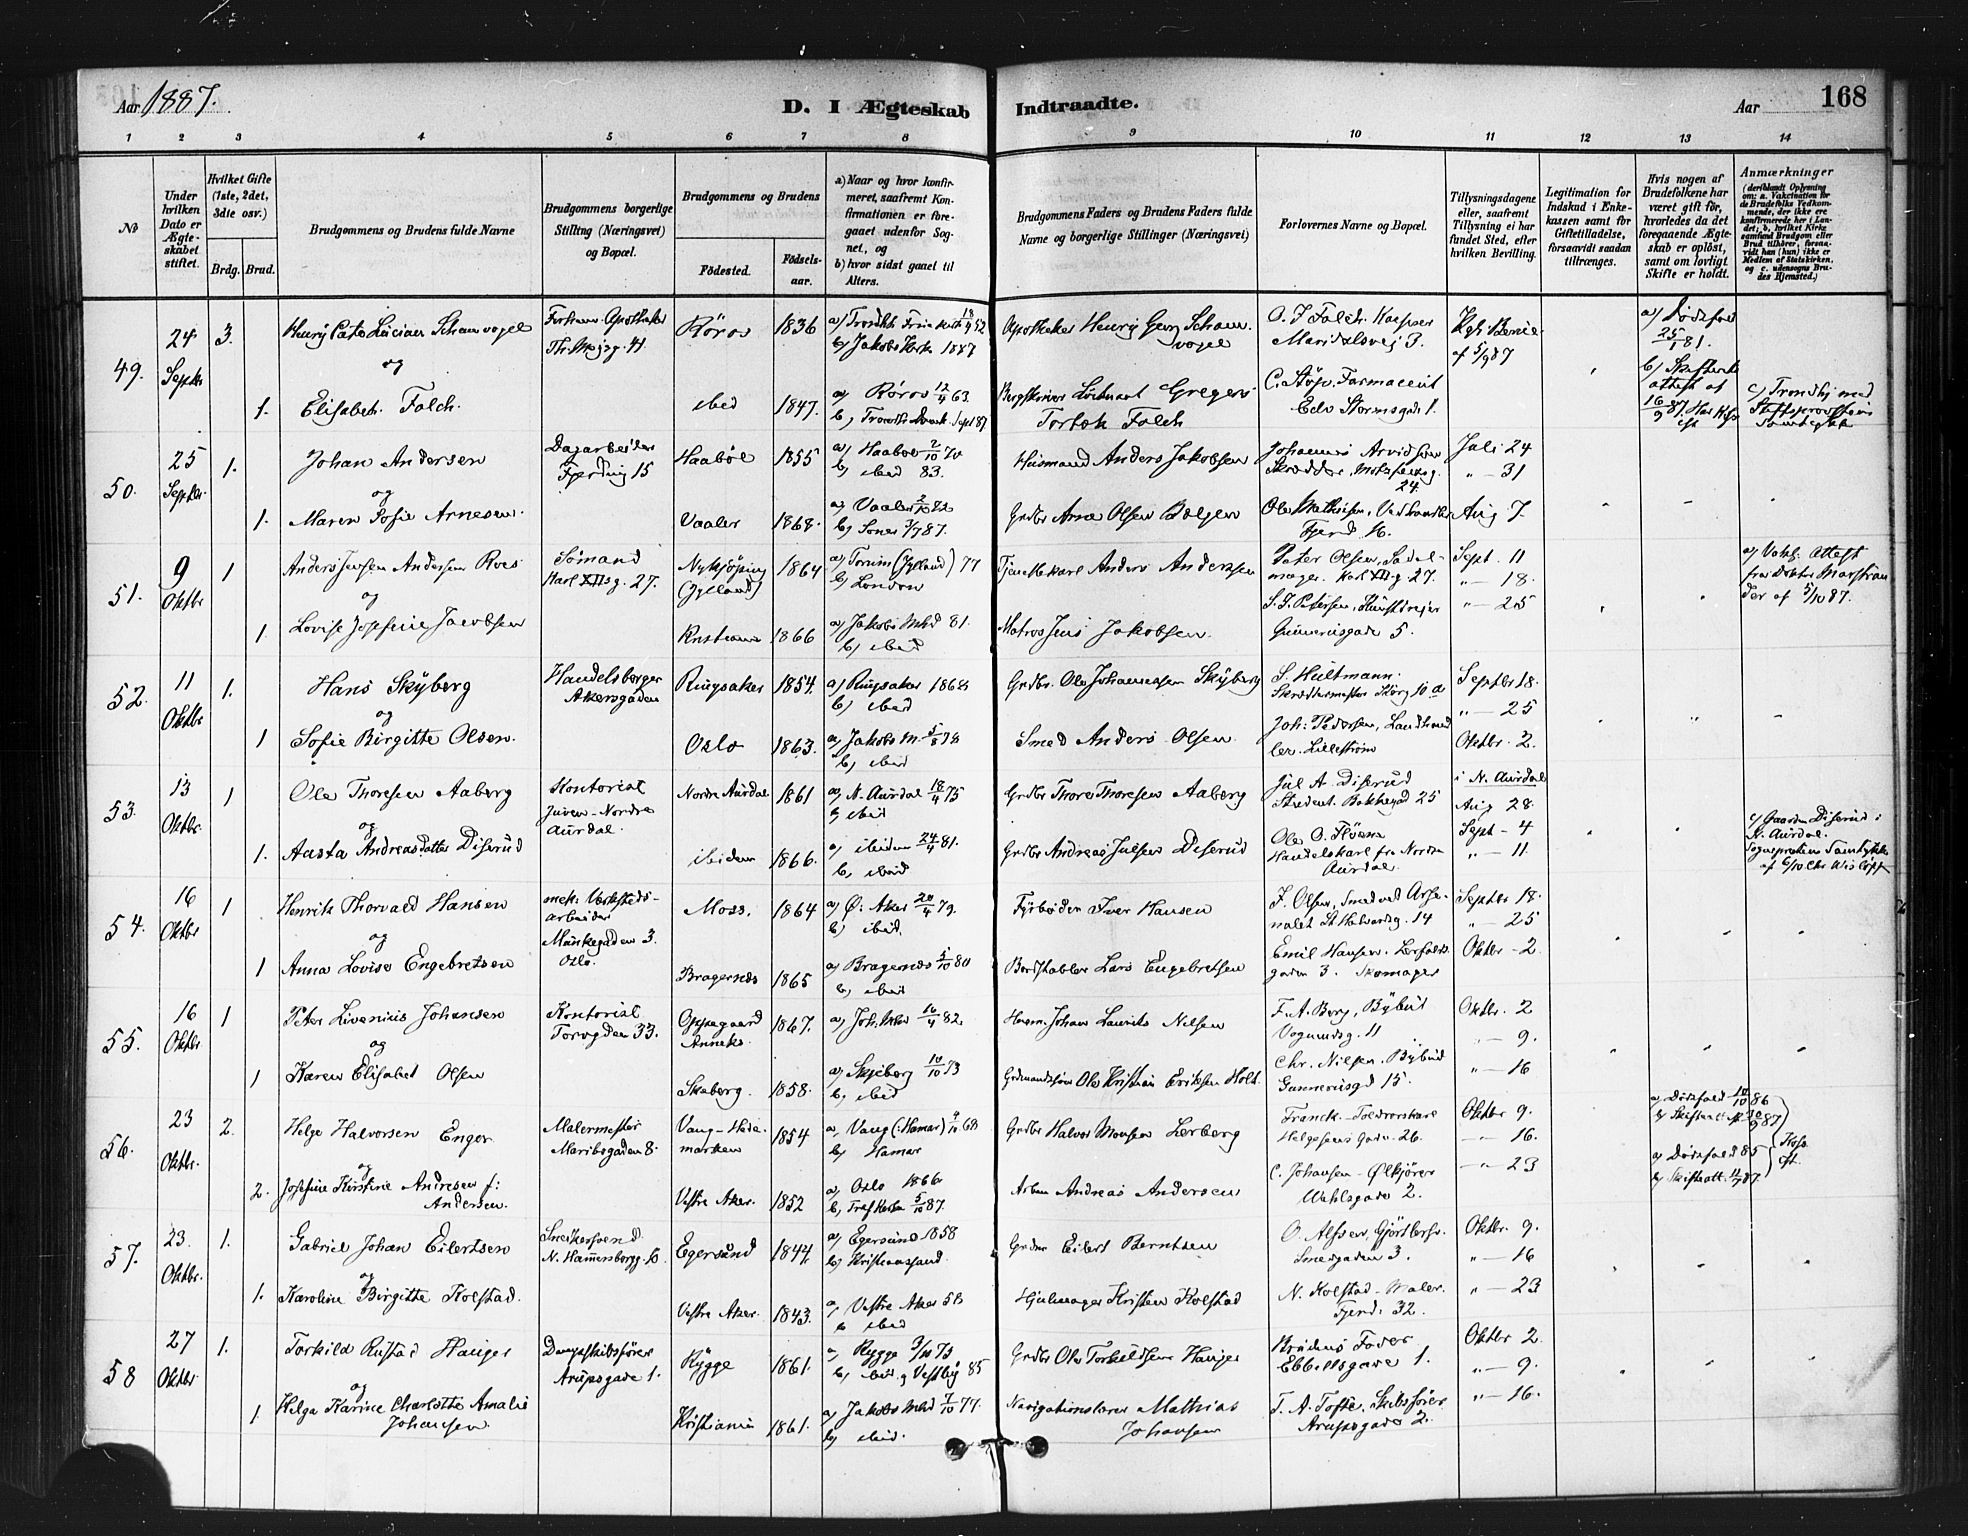 Aar 1887.
D. I Ægteskab Indtraadte.
Aar
168
1 2 3 4 5 6 7 8 9 10 11 12 13 14
No
Under hvilken Dato er Ægteskabet stiftet.
Hvilket Gifte (1ste, 2det, 3die osv.)
Brdg. Brud.
Brudgommens og Brudens fulde Navne
Brudgommens borgerlige Stilling (Næringsvei) og Bopæl.
Brudgommens og Brudens
Fødested.
Fødselsaar.
a) Naar og hvor konfirmeret, saafremt Konfirmationen er foregaaet udenfor Sognet, og
b) hvor sidst gaaet til Alters.
Brudgommens Faders og Brudens Faders fulde Navne og borgerlige Stillinger (Næringsvei)
Forlovernes Navne og Bopæl.
Tillysningsdagene eller, saafremt Tillysning ei har fundet Sted, efter hvilken Bevilling.
Legitimation for Indskud i Enkekassen samt for Giftetilladelse, forsaavidt saadan tiltrænges.
Hvis nogen af Brudefolkene har været gift før, hvorledes da det foregaaende Ægteskab er opløst, samt om lovligt Skifte er holdt.
Anmærkninger
49. 24 Septbr 3. Henry Cato Lucian Schauvogel
Thv. Meyersg. 41
Røros 1836
b) Jakobs Kirke 1887
Apotheker Henry Georg Schauvogel
O. F. Falch
Maridalsvej 3.
af 5/9 87
a) Dødsfald 25/1 81.
og
1. Elisabeth Falch.
ibid 1847.
a) Røros 12/4 63
Gregers Torbok Falch
C. Støp. Farmaceut
Edv Stormsgade 1.
50. 25 Septbr. 1. Johan Andersen
Dagarbeider
Fjerding 15
Haabøl 1855
a) Haabøl 2/10 70
b) ibid 83.
Husmand Anders Jakobsen
Johannes Arvidsen
Skrædder, Motzfeldtsg. 24.
Juli 24
" — 31
og
1. Maren Sofie Arnesen.
Vaaler 1868.
a) Vaaler 2/10 82
b) Soner 3/7 87.
Grdbr Arne Olsen Bolgen
Ole Mathisen, Vedhandler
Fjerd. 16.
Aug 7.
51. 9 Oktbr 1 Anders Jensen Andersen Roes
Sømand
Karl XIIsg. 27.
Nykjöping (Jylland) 1864
a) Torum (Jylland) 77
b) London
Tjenestekarl Anders Andersen
Peter Olsen, Sadelmager. Karl XIIg 27.
Sept. 11
" — 18.
a) Vakc. Attest fra Doktor Marstrander af 5/10 87.
og
1. Lovise Josefine Jacobsen
Kristiania 1866
a) Jakobs Mhd 81.
b) ibid
Matros Jens Jakobsen.
S. J. Petersen, Kunstdrejer
Gunnerusgade 5.
" — 25
52. 11 Oktbr 1. Hans Skyberg
Handelsborger
Akersgaden
Ringsaker 1854.
a) Ringsaker 1868
b) ibid
Grdbr. Ole Johannesen Skyberg
S. Hultmann.
Skræddermester Storg 10 a
Septbr 18.
" — 25
og
1 Sofie Birgitte Olsen.
Oslo 1863.
a) Jakobs M. 5/8 78
b) ibid
Smed Anders Olsen
Joh: Pedersen, Landhandler. Lillestrøm
Oktbr. 2.
53. 13 Oktbr. 1 Ole Thoresen Aaberg
Kontorist
Juven - Nordre Aurdal.
Nordre Aurdal 1861
a) N. Aurdal 18/4 75
b) ibid
Grdbr Thore Thoresen Aaberg
Jul A. Diserud
Student. Bakkegad 25
i N. Aurdal
Aug 28.
og
1. Aasta Andreasdatter Diserud
ibidem 1866.
a) ibidem 24/4 81.
b) ibid
Grdbr Andreas Julsen Diserud
Handelskarl fra Nordre Aurdal.
Sept - 4
" — 11
c) Gaarden Diserud i N. Aurdal.
54. 16 Oktbr 1 Henrik Thorvald Hansen
mek: Verkstedsarbeider
Munkegaden 3.
Oslo.
Moss. 1864
a) Ø: Aker 20/4 79.
b) ibid.
Fyrbøder Iver Hansen
F. Olsen, Smed ved Arsenalet St Halvardsg. 14
Septbr 18.
" — 25
og
1 Anna Lovise Engebretsen
Bragernes 1865
a) Bragernes 5/10 80
b) ibid
Bordstabler Lars Engebretsen
Emil Hansen. Lerfaldsgaden 3. Skomager
Oktbr - 2
55. 16 Oktbr. 1 Peter Livenius Johansen
Kontorist
Torvgden 33.
Oppegaard Anneks. 1867.
a) Joh. Mhd 16/4 82.
Johan Laurits Nilsen
F. A. Berg, Bybud
Vognmdsg. 11
Oktbr. 2
" — 9.
og
1 Karen Elisabet Olsen
Skeberg. 1858.
a) Skjeberg 10/10 73
b) ibid
Grdmandssøn Ole Kristian Eriksen Holt.
Chr. Nilsen. Bybud
Gunnerusgd 15.
" — 16
56. 23 Oktbr. 2. Helge Halvorsen Enger
Malermester
Maribogaden 8.
Vang - Hedemarken 1854
a) Vang (: Hamar) 4/10 68
b) Hamar
Grdbr Halvor Monsen Lerberg
Helgesensgade. 26.
Oktbr 9.
" — 16.
a) Dødsfald 10/10 86
og
2. Josefine Kirstine Andresen f: Andersen.
Vestre Aker. 1852
a) Oslo 1866
b) Trefkirken 5/10 87.
Arbm Andreas Andersen
C. Johansen - Ølkjører
Wahlsgade 2.
" — 23
a) Dødsfald 85
57. 23. Oktbr. 1. Gabriel Johan Eilertsen
Snedkersvend
N. Hammersborgg. 10
Egersund 1844.
a) Egersund 1858
b) Kristianssand.
Grdbr Eilert Berntsen
O. Alfsen, Gjørtlersv.
Smedgaden 3.
Oktbr. 9.
" — 16
og
1. Karoline Birgitte Kolstad.
Vestre Aker. 1843.
a) Vestre Aker 58
b) ibid
Hjulmager Kristen Kolstad
N. Kolstad - Maler.
Fjerd: 32.
" — 23
58 27 Oktbr. 1. Torkild Rustad Hauger
Dampskibsfører
Arupsgade 1.
Rygge 1861.
a) Rygge 3/10 75
b) ibid. og Vestby 85
Grdbr Ole Torkildsen Hauger
Ebbellsgade 1.
Oktbr 2.
" — 9.
og
1 Helga Karine Charlotte Amalie Johansen
Kristiania 1861.
a) Jakobs Mhd 7/10 77.
b) ibid.
Navigationslærer Mathias Johansen
T. A. Tofte, Skibsfører
Arupsgade 2.
" — 16.